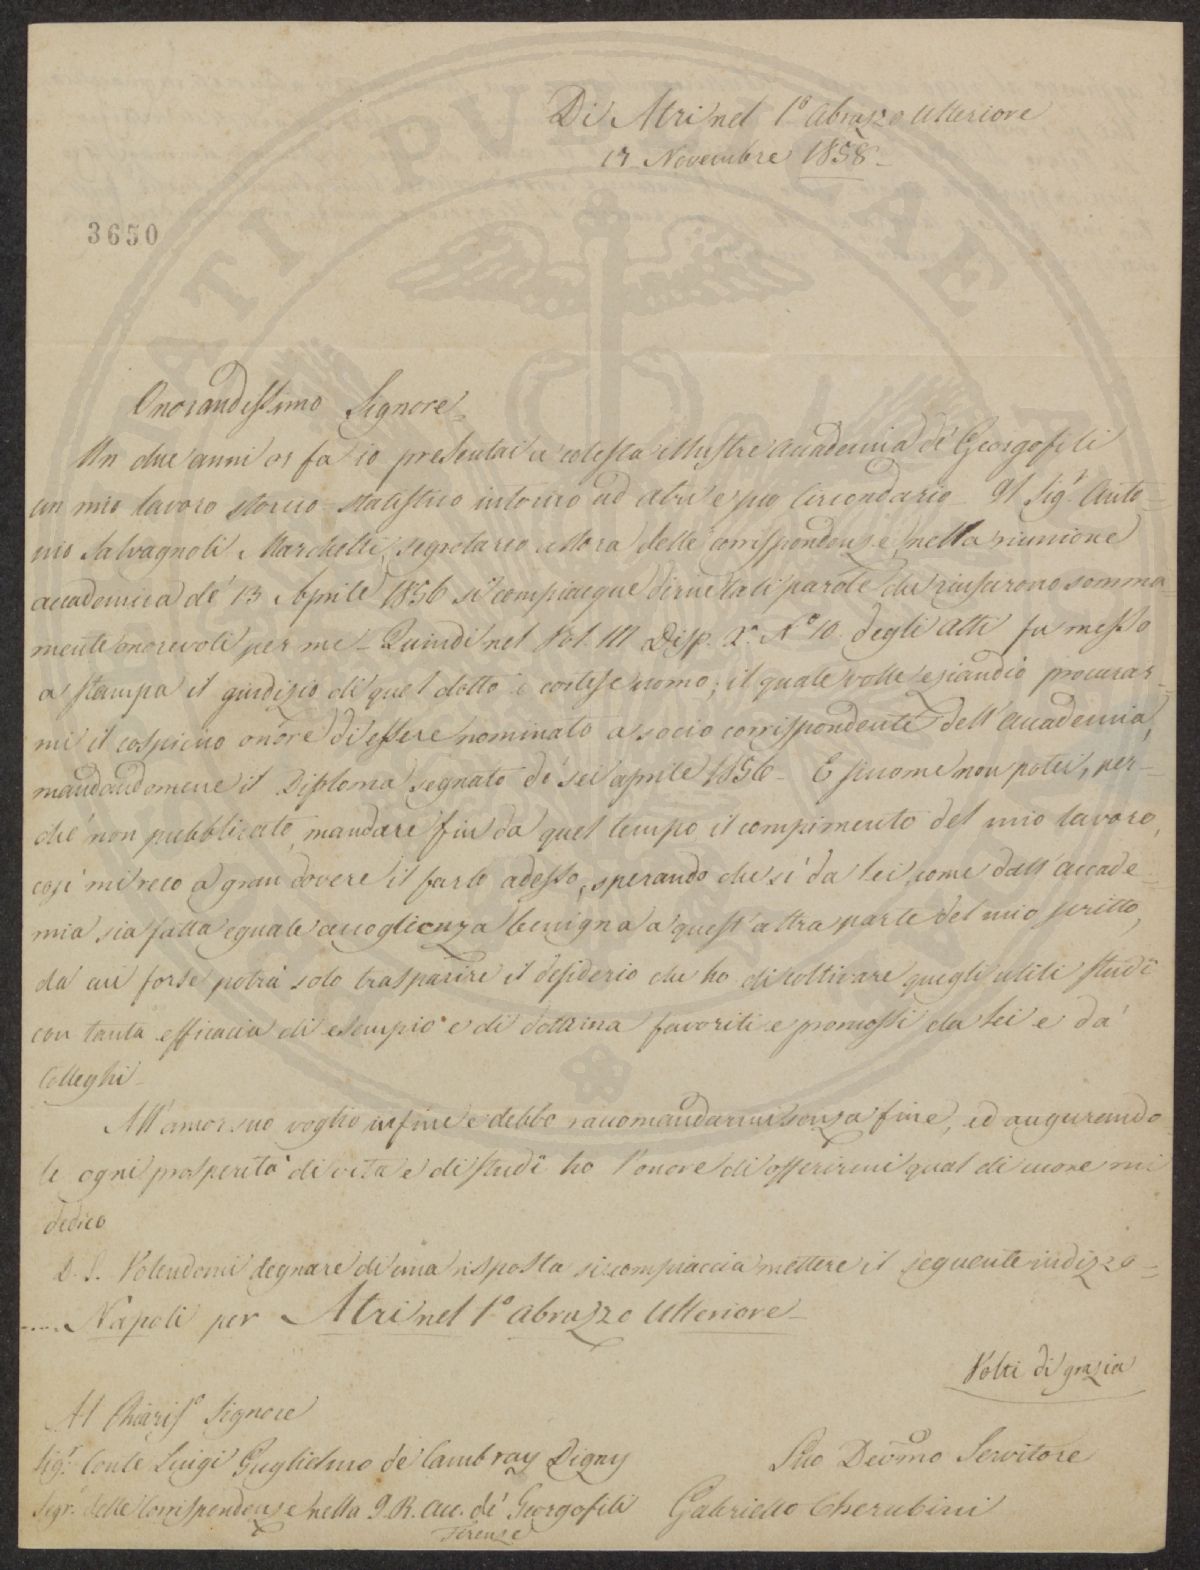 Di Atri nel 1º Abruzzo Ulteriore
17 Novembre 1858_
3650
Onorandissimo Signore_
Un due anni or fa io presentai a cotesta illustre Accademia de' Georgofili
un mio lavoro storico statistico intorno ad Atri e suo Circondario_ Il Sigr. Anto=
nio Salvagnoli Marchetti, segretario allora delle corrispondenze, nella riunione
accademica de' 13 Aprile 1856 si compiacque dirne tali parole che riuscirono somma=
mente onorevoli per me_ Quindi nel Vol. III Disp. 2ª Nº 10. degli Atti fu messo
a stampa il giudizio di quel dotto e cortese uomo; il quale volle eziandio procurar=
mi il cospicuo onore di essere nominato a socio corrispondente dell'Accademia,
mandandomene il Diploma segnato de' sei aprile 1856_ E siccome non potei, per=
chè non pubblicato, mandare fin da quel tempo il compimento del mio lavoro,
così mi reco a gran dovere il farlo adesso, sperando che sì da Lei, come dall'Accade=
mia sia fatta eguale accoglienza benigna a quest'altra parte del mio scritto,
da cui forse potrà solo trasparire il desiderio che ho di coltivare quegli utili studî
con tanta efficacia di esempio e di dottrina favoriti e promossi da Lei e da'
Colleghi_
All'amor suo voglio infine e debbo raccomandarmi senza fine, ed augurando
le ogni prosperità di vita e di studî ho l'onore di offerirmi qual di cuore mi
dedico
P. S. Volendomi degnare di una risposta si compiaccia mettere il seguente indizzo=
..... Napoli per Atri nel 1º Abruzzo Ulteriore_
Volti di grazia
Al Chiaris.º Signore
Sigr. Conte Luigi Guglielmo de Cambray Digny
Segr. delle Corrispondenze nella I. R. Acc. de' Georgofili
Firenze
Suo Devmo Servitore
Gabriello Cherubini